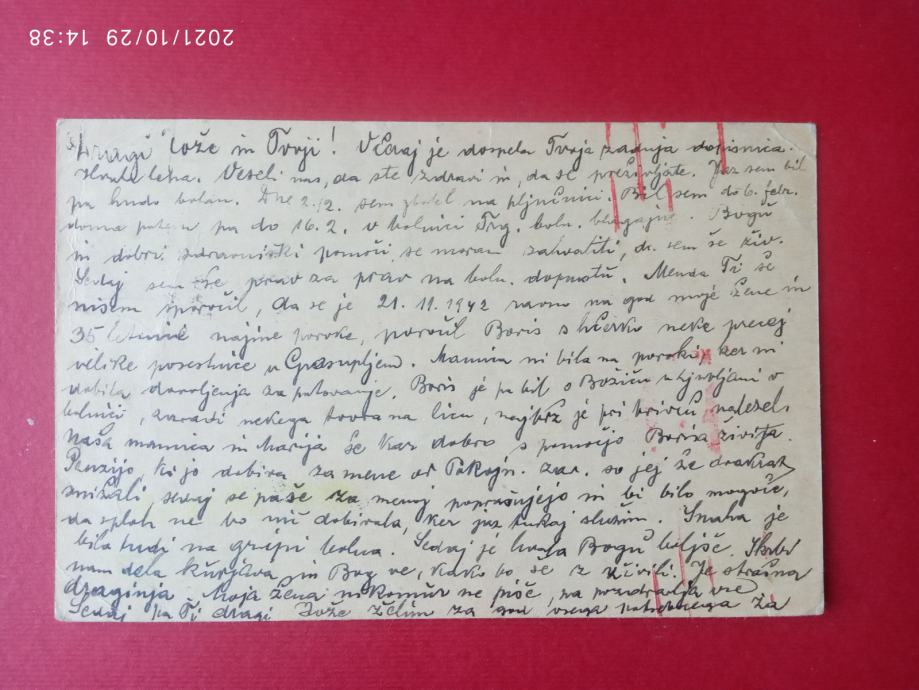 2021/10/29 14:38
Dragi Jože in Tvoji! Včeraj je dospela Tvoja zadnja dopisnica.
Hvala lepa. Veseli nas, da ste zdravi in, da se preživljate. Jaz sem bil
pa hudo bolan. Dne 2./2. sem zbolel na pljučnici. Bil sem do 6. febr.
doma potem pa do 16.2. v bolnici Trg. boln. blagajne. Bogu
in dobri zdravniški pomoči se moram zahvaliti, da sem še živ.
Sedaj sem še prav za prav na boln. dopustu. Menda Ti še
nisem sporočil, da se je 21.11.1942 ravno na god moje žene in
35 letnice najine poroke, poročil Boris s hčerko neke precej
velike posestnice v Grosupljem. Mamica ni bila na poroki, ker ni
dobila dovoljenja za potovanje. Boris je pa bil o Božiču v Ljubljani v
bolnici, zaradi nekega tvora na licu, najbrž je pri brivcu nalezel.
Naša mamica in Marija še kar dobro s pomočjo Borisa živita.
Penzijo, ki jo dobiva za mene od Pokojn. zav. so jej že dvakrat
znižali sedaj se pa še za menoj poprašujejo in bi bilo mogoče,
da sploh ne bo nič dobivala, ker jaz tukaj služim. Snaha je
bila tudi na gripi bolna. Sedaj je hvala Bogu boljše. Skrbi
nam dela kurjava in Bog ve, kako bo se z živili. Je strašna
draginja. Moja žena nikomur ne piše, pa pozdravlja vse
Sedaj pa Ti dragi Jože želim za god vsega potrebnega za